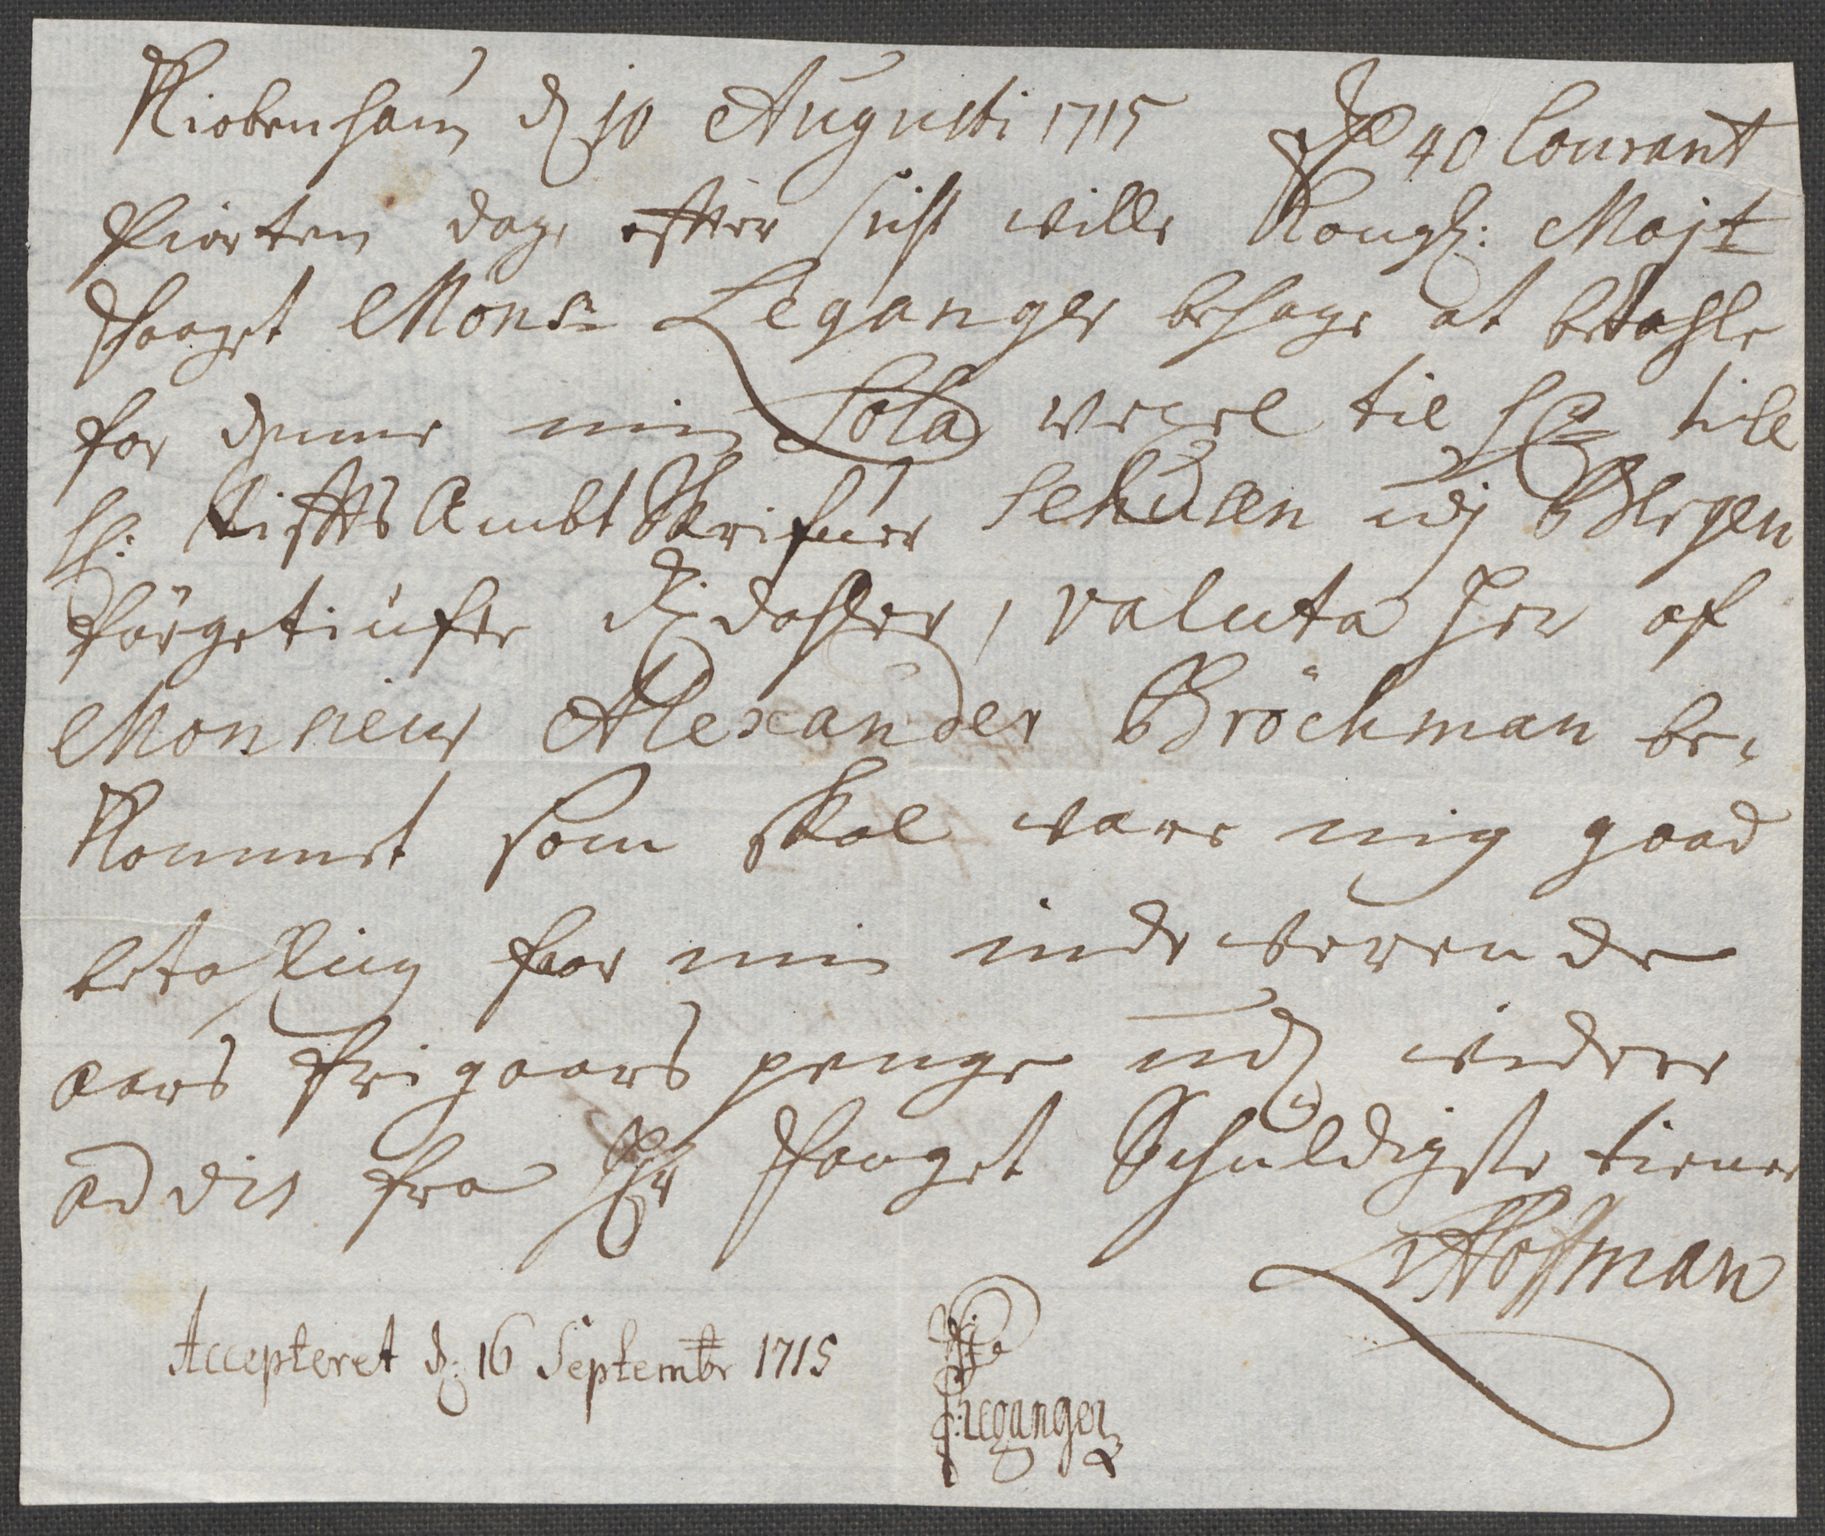 Kiobenhafn d 10 Augusti 1715 Rd 40 Courant
Fiorten dage effter sicht wille Kongl: Majt
Foaget Monsr Leganger behage at betahle
for denne min Sola vexel til hr till
hr: Stiffts Ambt Skrifuer Sehusen udj Bergen
förgetiufue Rixdahler, valuta her af
Monsieur Alexander Bröckman be,
kommet som skal vare mig goed
betahling for min inde verende
aars fri gaars penge udj videre
ad vis fra Hr Fouget Schuldigste tiener
LvHoffman
Accepteret d: 16 Septembr 1715
Leganger